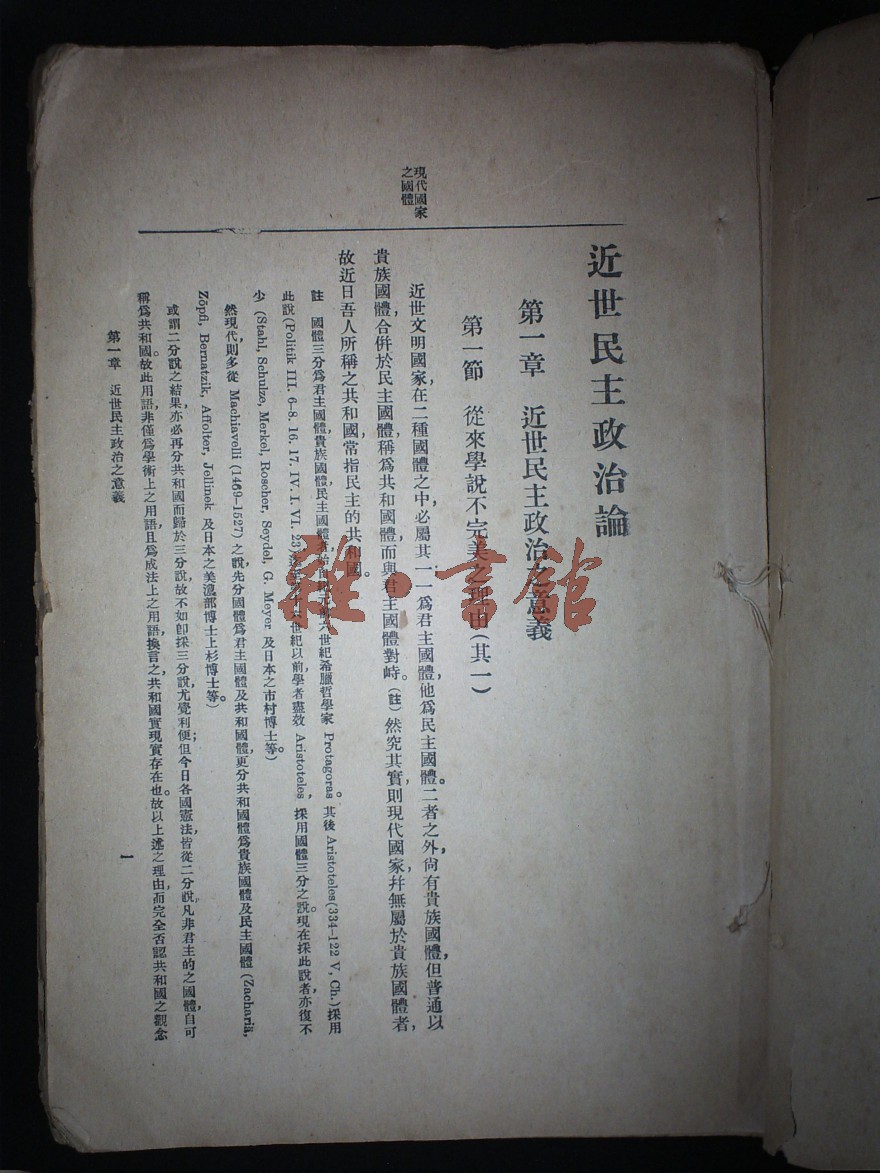 近世民主政治論
第一章 近世民主政治之意義
第一節 從來學說不完美之理由(其一)
現代國家
之國體
近世文明國家,在二種國體之中,必屬其一,一爲君主國體,他爲民主國體。二者之外,尙有貴族國體,但普通以
貴族國體,合併於民主國體,稱爲共和國體,而與君主國體對峙。(註)然究其實,則現代國家,幷無屬於貴族國體者,
故近日吾人所稱之共和國,常指民主的共和國。
註 國體三分爲君主國體,貴族國體,民主國體者,始 六世紀希臘哲學家 Protagoras。其後 Aristoteles(334-122 V, Ch.)採用
此說(Politik III. 6-8. 16. 17. IV. I. VI. 23) 十六世紀以前,學者盡效 Aristoteles,採用國體三分之說。現在採此說者,亦復不
少(Stahl, Schulze, Merkel, Roscher, Seydel, G. Meyer 及日本之市村博士等。)
然現代,則多從 Machiavelli (1469-1527) 之說,先分國體爲君主國體及共和國體,更分共和國體爲貴族國體及民主國體 (Zachariä,
Zöpfl, Bernatzik, Affolter, Jellinek 及日本之美濃部博士上杉博士等)。
或謂二分說之結果,亦必再分共和國而歸於三分說,故不如卽採三分說,尤覺利便;但今日各國憲法,皆從二分說,凡非君主的之國體,自可
稱爲共和國。故此用語,非僅爲學術上之用語,且爲成法上之用語,換言之,共和國實現實存在也。故以上述之理由,而完全否認共和國之觀念
第一章 近世民主政治之意義
一
雜·書館